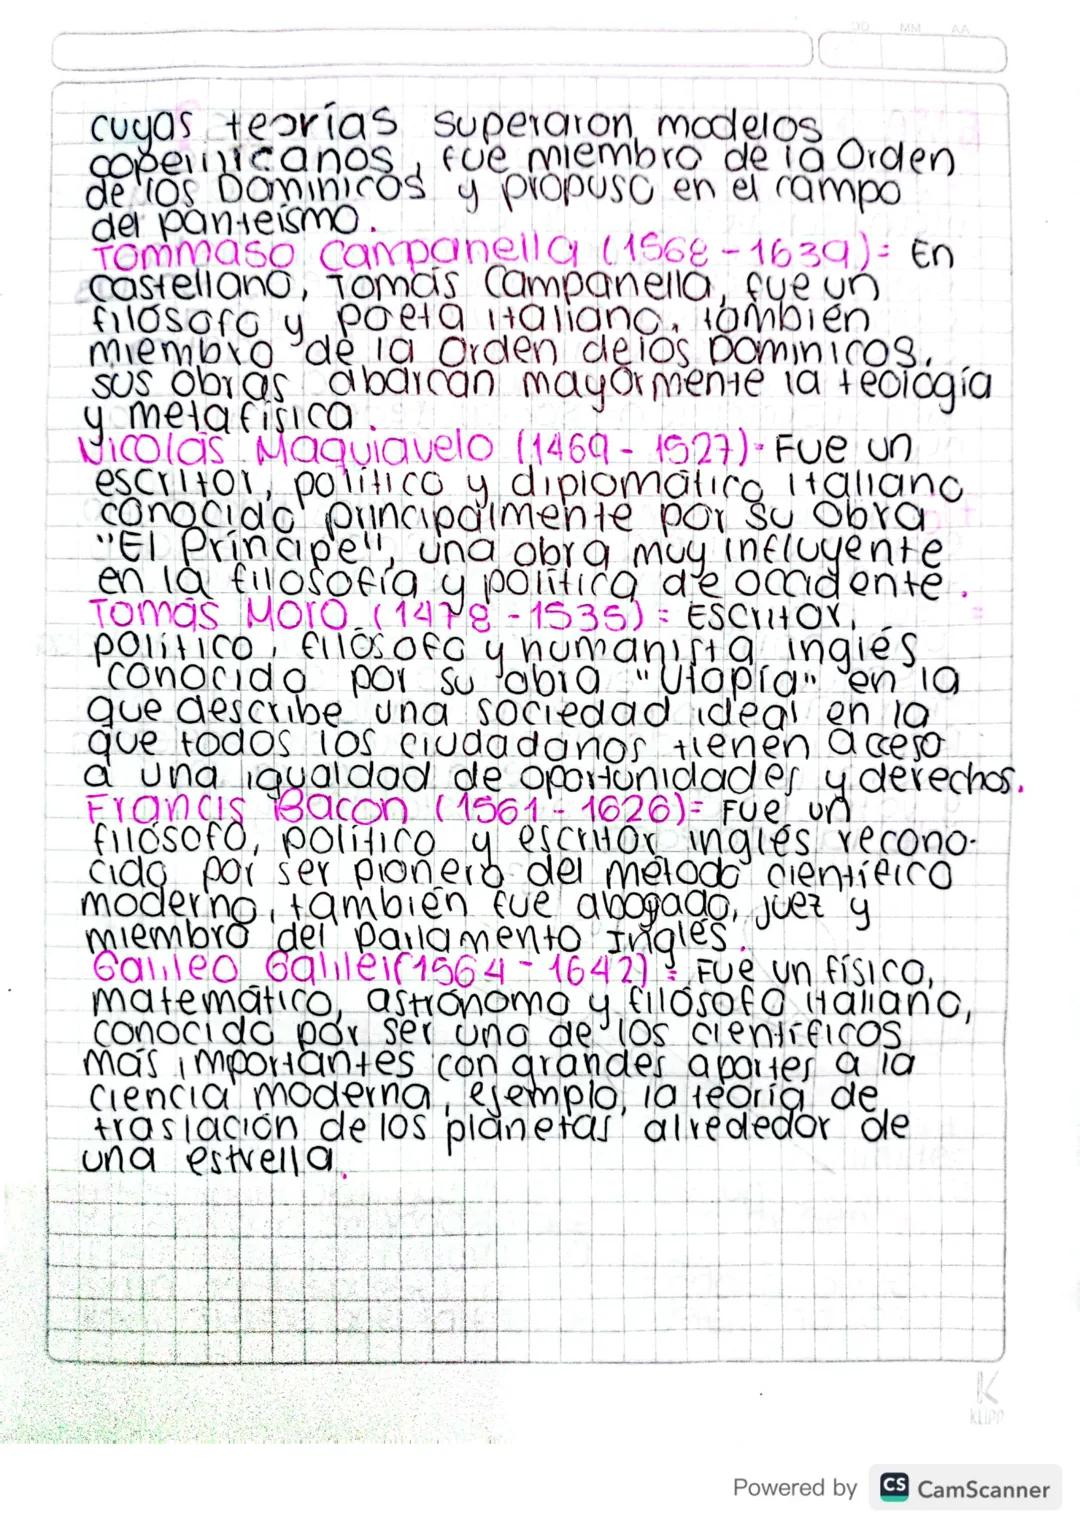 DD MM AA
cuyas teorías superaron modelos
copernicanos, fue miembro de la Orden
de los Dominicos y propuso en el campo
del panteísmo.
Tommaso Campanella (1568-1639)= En
castellano, Tomás Campanella, fue un
filósofo y poeta italiano, también
miembro de la Orden de los Dominicos,
sus obras abarcan mayormente la teología
y metafísica.
Nicolás Maquiavelo (1469-1527)= Fue un
escritor, político y diplomático italiano
conocido principalmente por su obra
"El Príncipe", una obra muy influyente
en la filosofía y política de occidente.
Tomás Moro (1478-1535)= Escritor,
político, filósofo y humanista inglés
conocido por su obra "Utopía" en la
que describe una sociedad ideal en la
que todos los ciudadanos tienen acceso
a una igualdad de oportunidades y derechos.
Francis Bacon (1561-1626)= Fue un
filósofo, político y escritor inglés recono-
cido por ser pionero del método científico
moderno, también fue abogado, juez y
miembro del Parlamento Inglés.
Galileo Galilei (1564-1642)= Fue un físico,
matemático, astrónomo y filósofo italiano,
conocido por ser uno de los científicos
más importantes con grandes aportes a la
ciencia moderna, ejemplo, la teoría de
traslación de los planetas alrededor de
una estrella.
K
KLIPP
Powered by CS CamScanner